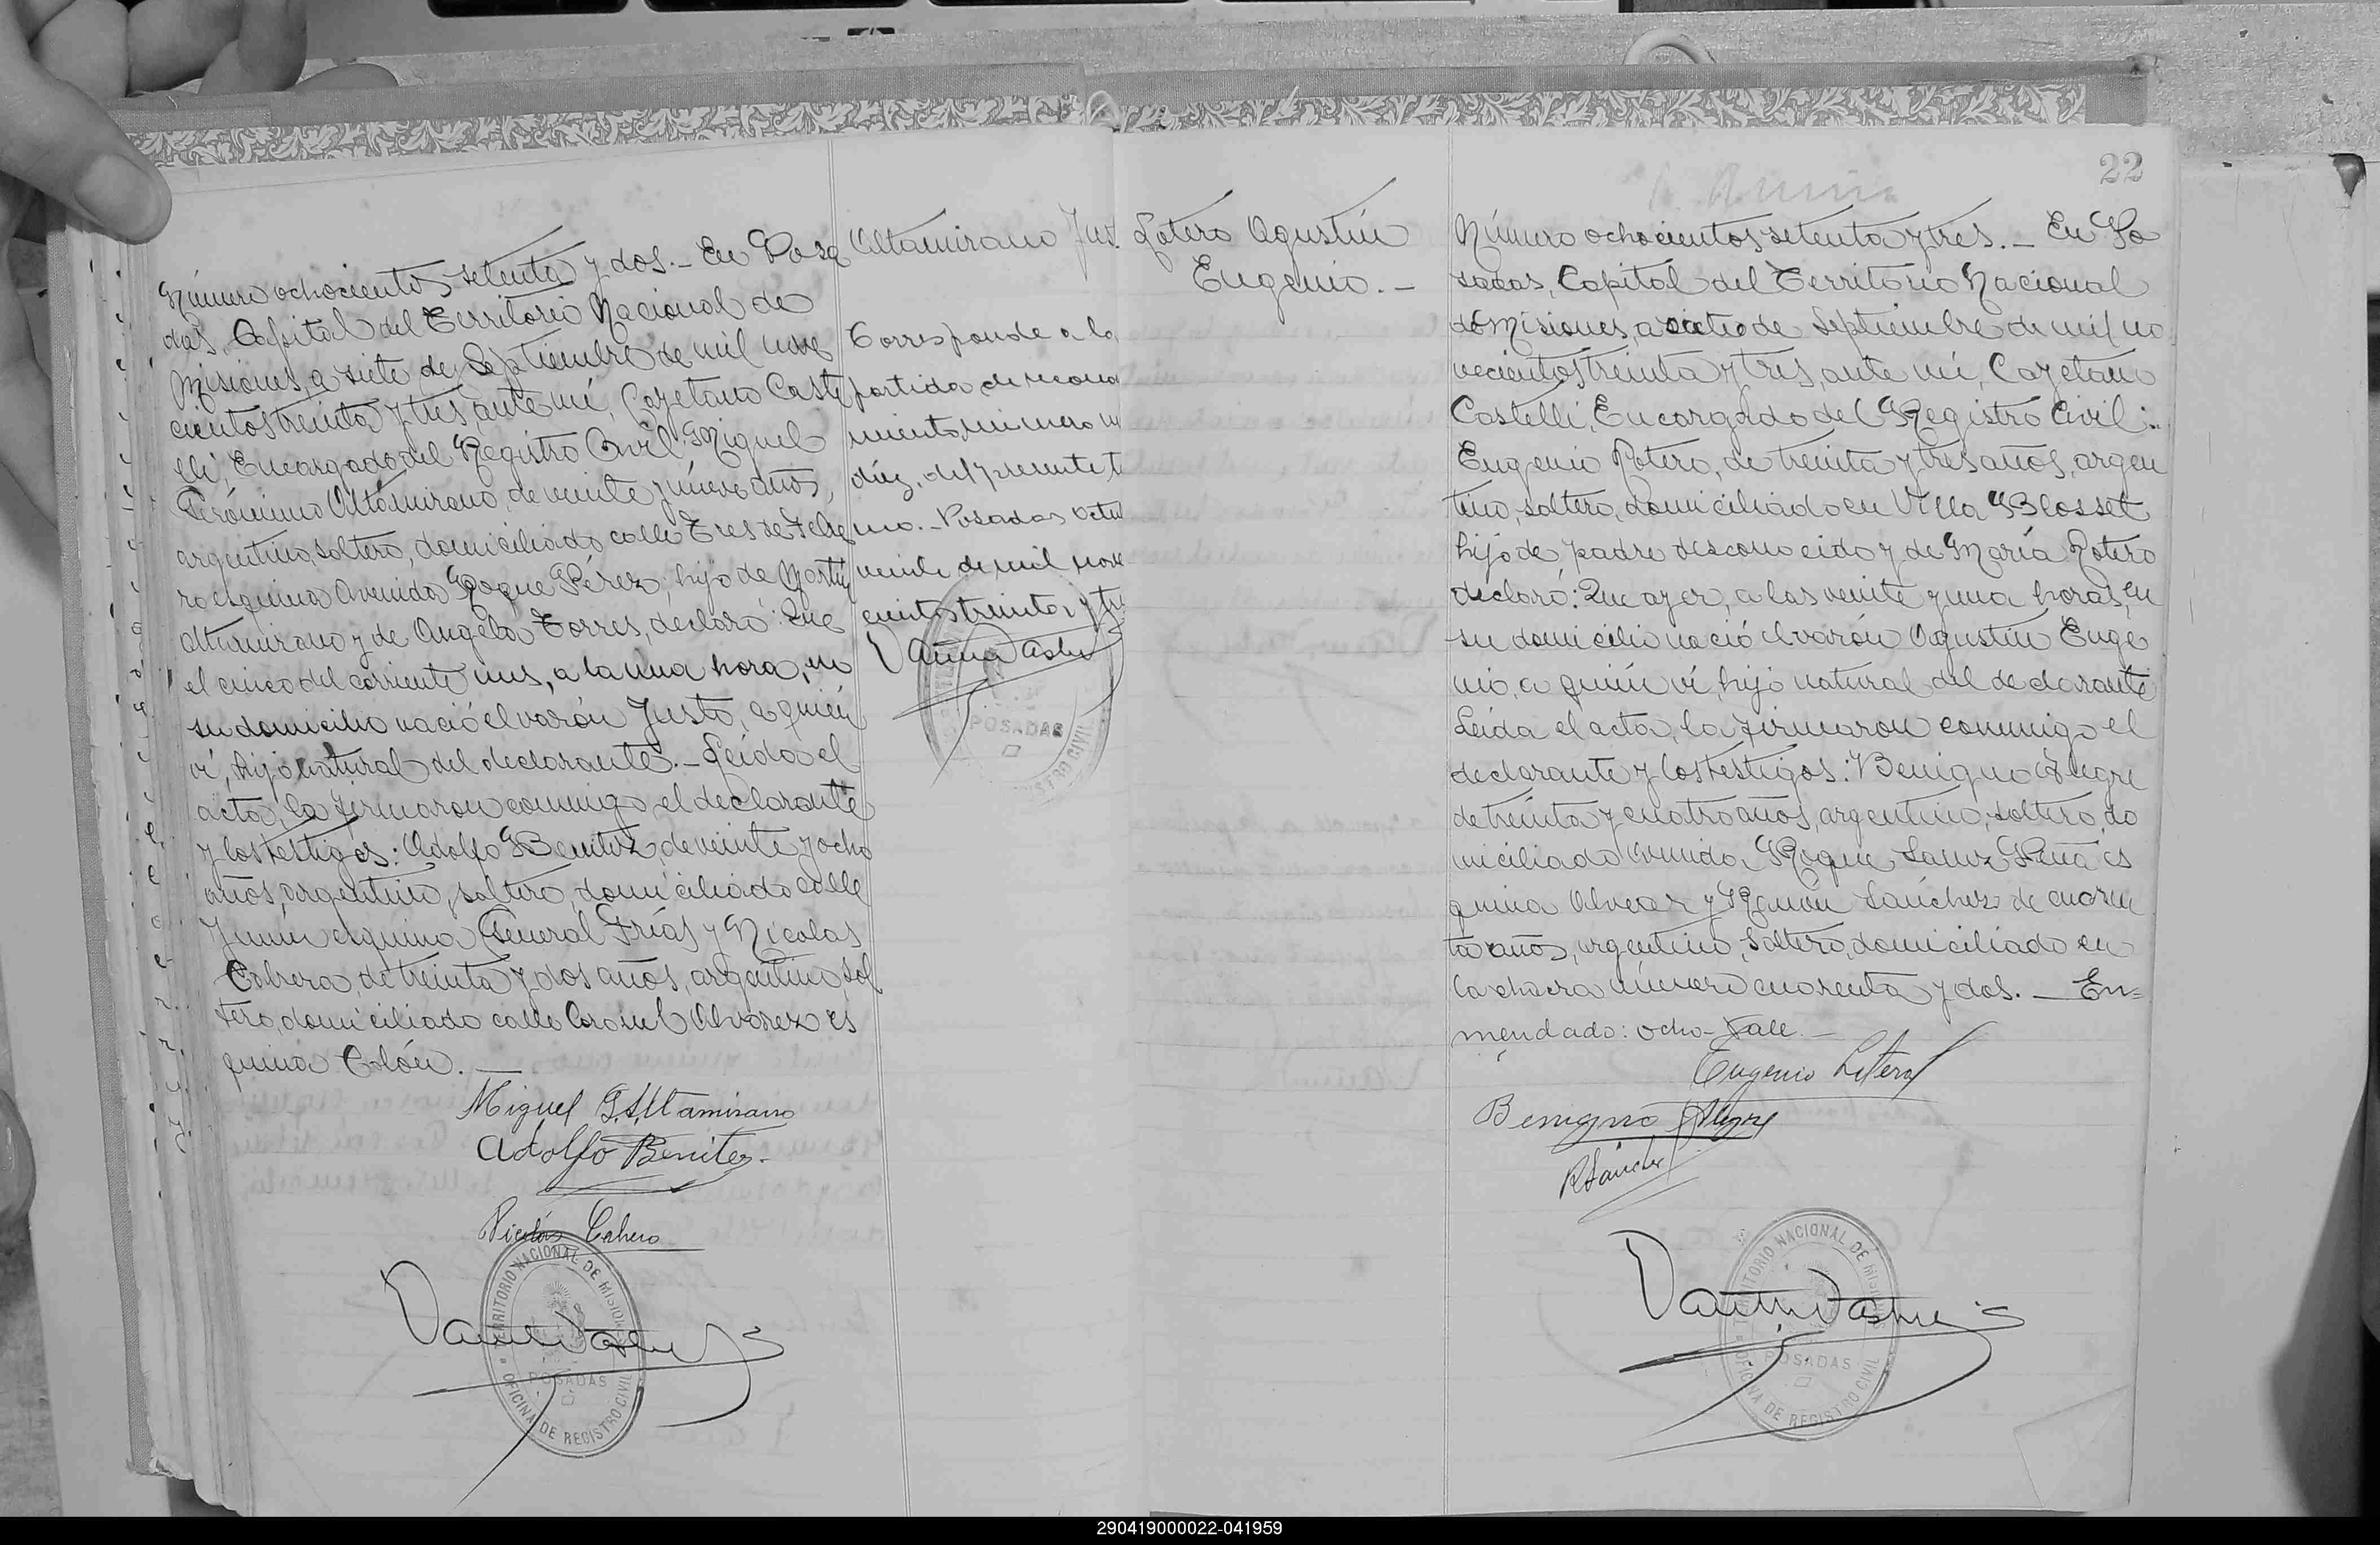 Número ochocientos setenta y dos.- En Posa
das, Capital del Territorio Nacional de
Misiones, a siete de Septiembre de mil nove
cientos treinta y tres, ante mí, Cayetano Caste
lli, Encargado del Registro Civil Miguel
Gerónimo Altamirano, de veinte y nueve años,
argentino, soltero, domiciliado calle Tres de Febre
ro esquina Avenida Roque Pérez, hijo de Martín
Altamirano y de Angela Torres, declaró: Que
el cinco del corriente mes, a la una hora, en
su domicilio nació el varón Justo, a quién
ví, hijo natural del declarante.- Leída el
acta, la firmaron conmigo el declarante
y los testigos: Adolfo Benitez, de veinte y ocho
años, argentino, soltero, domiciliado calle
Junín esquina General Frías y Nicolas
Cabrera, de treinta y dos años, argentino sol
tero, domiciliado calle Coronel Alvarez es
quina Colón.-
Miguel G. Altamirano
Adolfo Benitez.-
TERRITORIO NACIONAL DE MISIONES
POSADAS
OFICINA DE REGISTRO CIVIL
Altamirano Jus
Corresponde a la
partida de recono
cimiento número
diez, del presente t
mo.- Posadas Octu
veinte de mil nove
cientos treinta y tr
POSADAS
Lotero Agustín
Eugenio.-
22
Número ochocientos setenta y tres.- En Po
sadas, Capital del Territorio Nacional
de Misiones, a ocho de Septiembre de mil no
vecientos treinta y tres, ante mí, Cayetano
Castelli, Encargado del Registro Civil:
Eugenio Lotero, de treinta y tres años, argen
tino, soltero, domiciliado en Villa Blosset
hijo de padre desconocido y de María Lotero
declaró: Que ayer, a las veinte y una horas, en
su domicilio nació el varón Agustín Euge
nio, a quién ví, hijo natural del declarante
Leída el acta, la firmaron conmigo el
declarante y los testigos: Benigno Alegre
de treinta y cuatro años, argentino, soltero, do
miciliado Avenida Roque Saenz Peña es
quina Alvear y Ramón Sánchez de cuaren
ta años, argentino, soltero, domiciliado en
la chacra número cuarenta y dos.- En=
mendado: ocho-Vale.-
Eugenio Lotero
Benigno Alegre
R Sánchez
TERRITORIO NACIONAL DE MISIONES
POSADAS
OFICINA DE REGISTRO CIVIL
290419000022-041959